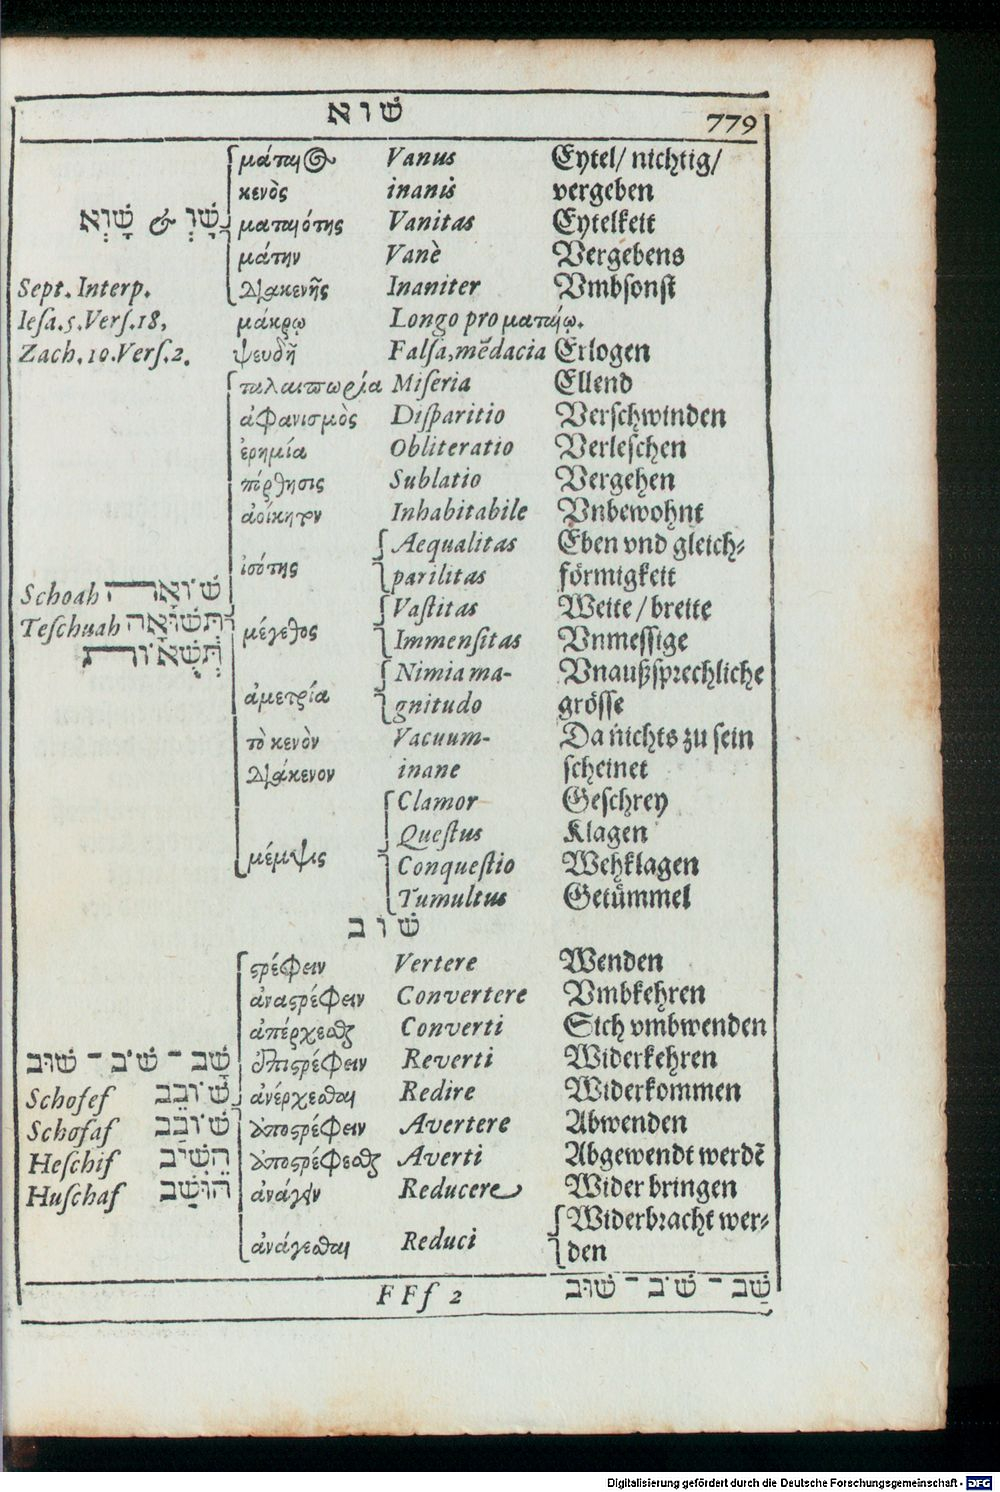 שׁוא
779
μάταιος Vanus Eytel/ nichtig/
κενὸς inanis vergeben
שָׁוְ & שָׁוְא ματαιότης Vanitas Eytelkeit
μάτην Vanè Vergebens
Sept. Interp. διακενῆς Inaniter Vmbsonst
Iesa.5.Vers.18, μάκρῳ Longo pro ματαίῳ.
Zach.10.Vers.2. ψευδῆ Falsa,mẽdacia Erlogen
ταλαιπωρία Miseria Ellend
ἀφανισμὸς Disparitio Verschwinden
ἐρημία Obliteratio Verleschen
πόρθησις Sublatio Vergehen
ἀοίκητον Inhabitabile Vnbewohnt
Aequalitas Eben vnd gleich-
ἰσότης parilitas förmigkeit
Schoah שׁוֹאָה Vastitas Weite / breite
Teschuah תְּשׁוּאָה μέγεθος Immensitas Vnmessige
תְּשֻׁאוֹת Nimia ma- Vnaußsprechliche
ἀμετρία gnitudo grösse
τὸ κενὸν Vacuum- Da nichts zu sein
διάκενον inane scheinet
Clamor Geschrey
Questus Klagen
μέμψις Conquestio Wehklagen
Tumultus Getümmel
שׁוב
στρέφειν Vertere Wenden
ἀναστρέφειν Convertere Vmbkehren
ἀπέρχεσθαι Converti Sich vmbwenden
שָׁב - שֹׁב - שׁוּב ἐπιστρέφειν Reverti Widerkehren
Schofef שׁוֹבֵב ἀνέρχεσθαι Redire Widerkommen
Schofaf שׁוֹבַב ἀποστρέφειν Avertere Abwenden
Heschif הֵשִׁיב ἀποστρέφεσθαι Averti Abgewendt werdẽ
Huschaf הוּשַׁב ἀνάγειν Reducere Wider bringen
Widerbracht wer-
ἀνάγεσθαι Reduci den
FFf 2 שָׁב - שֹׁב - שׁוּב
Digitalisierung gefördert durch die Deutsche Forschungsgemeinschaft - DFG